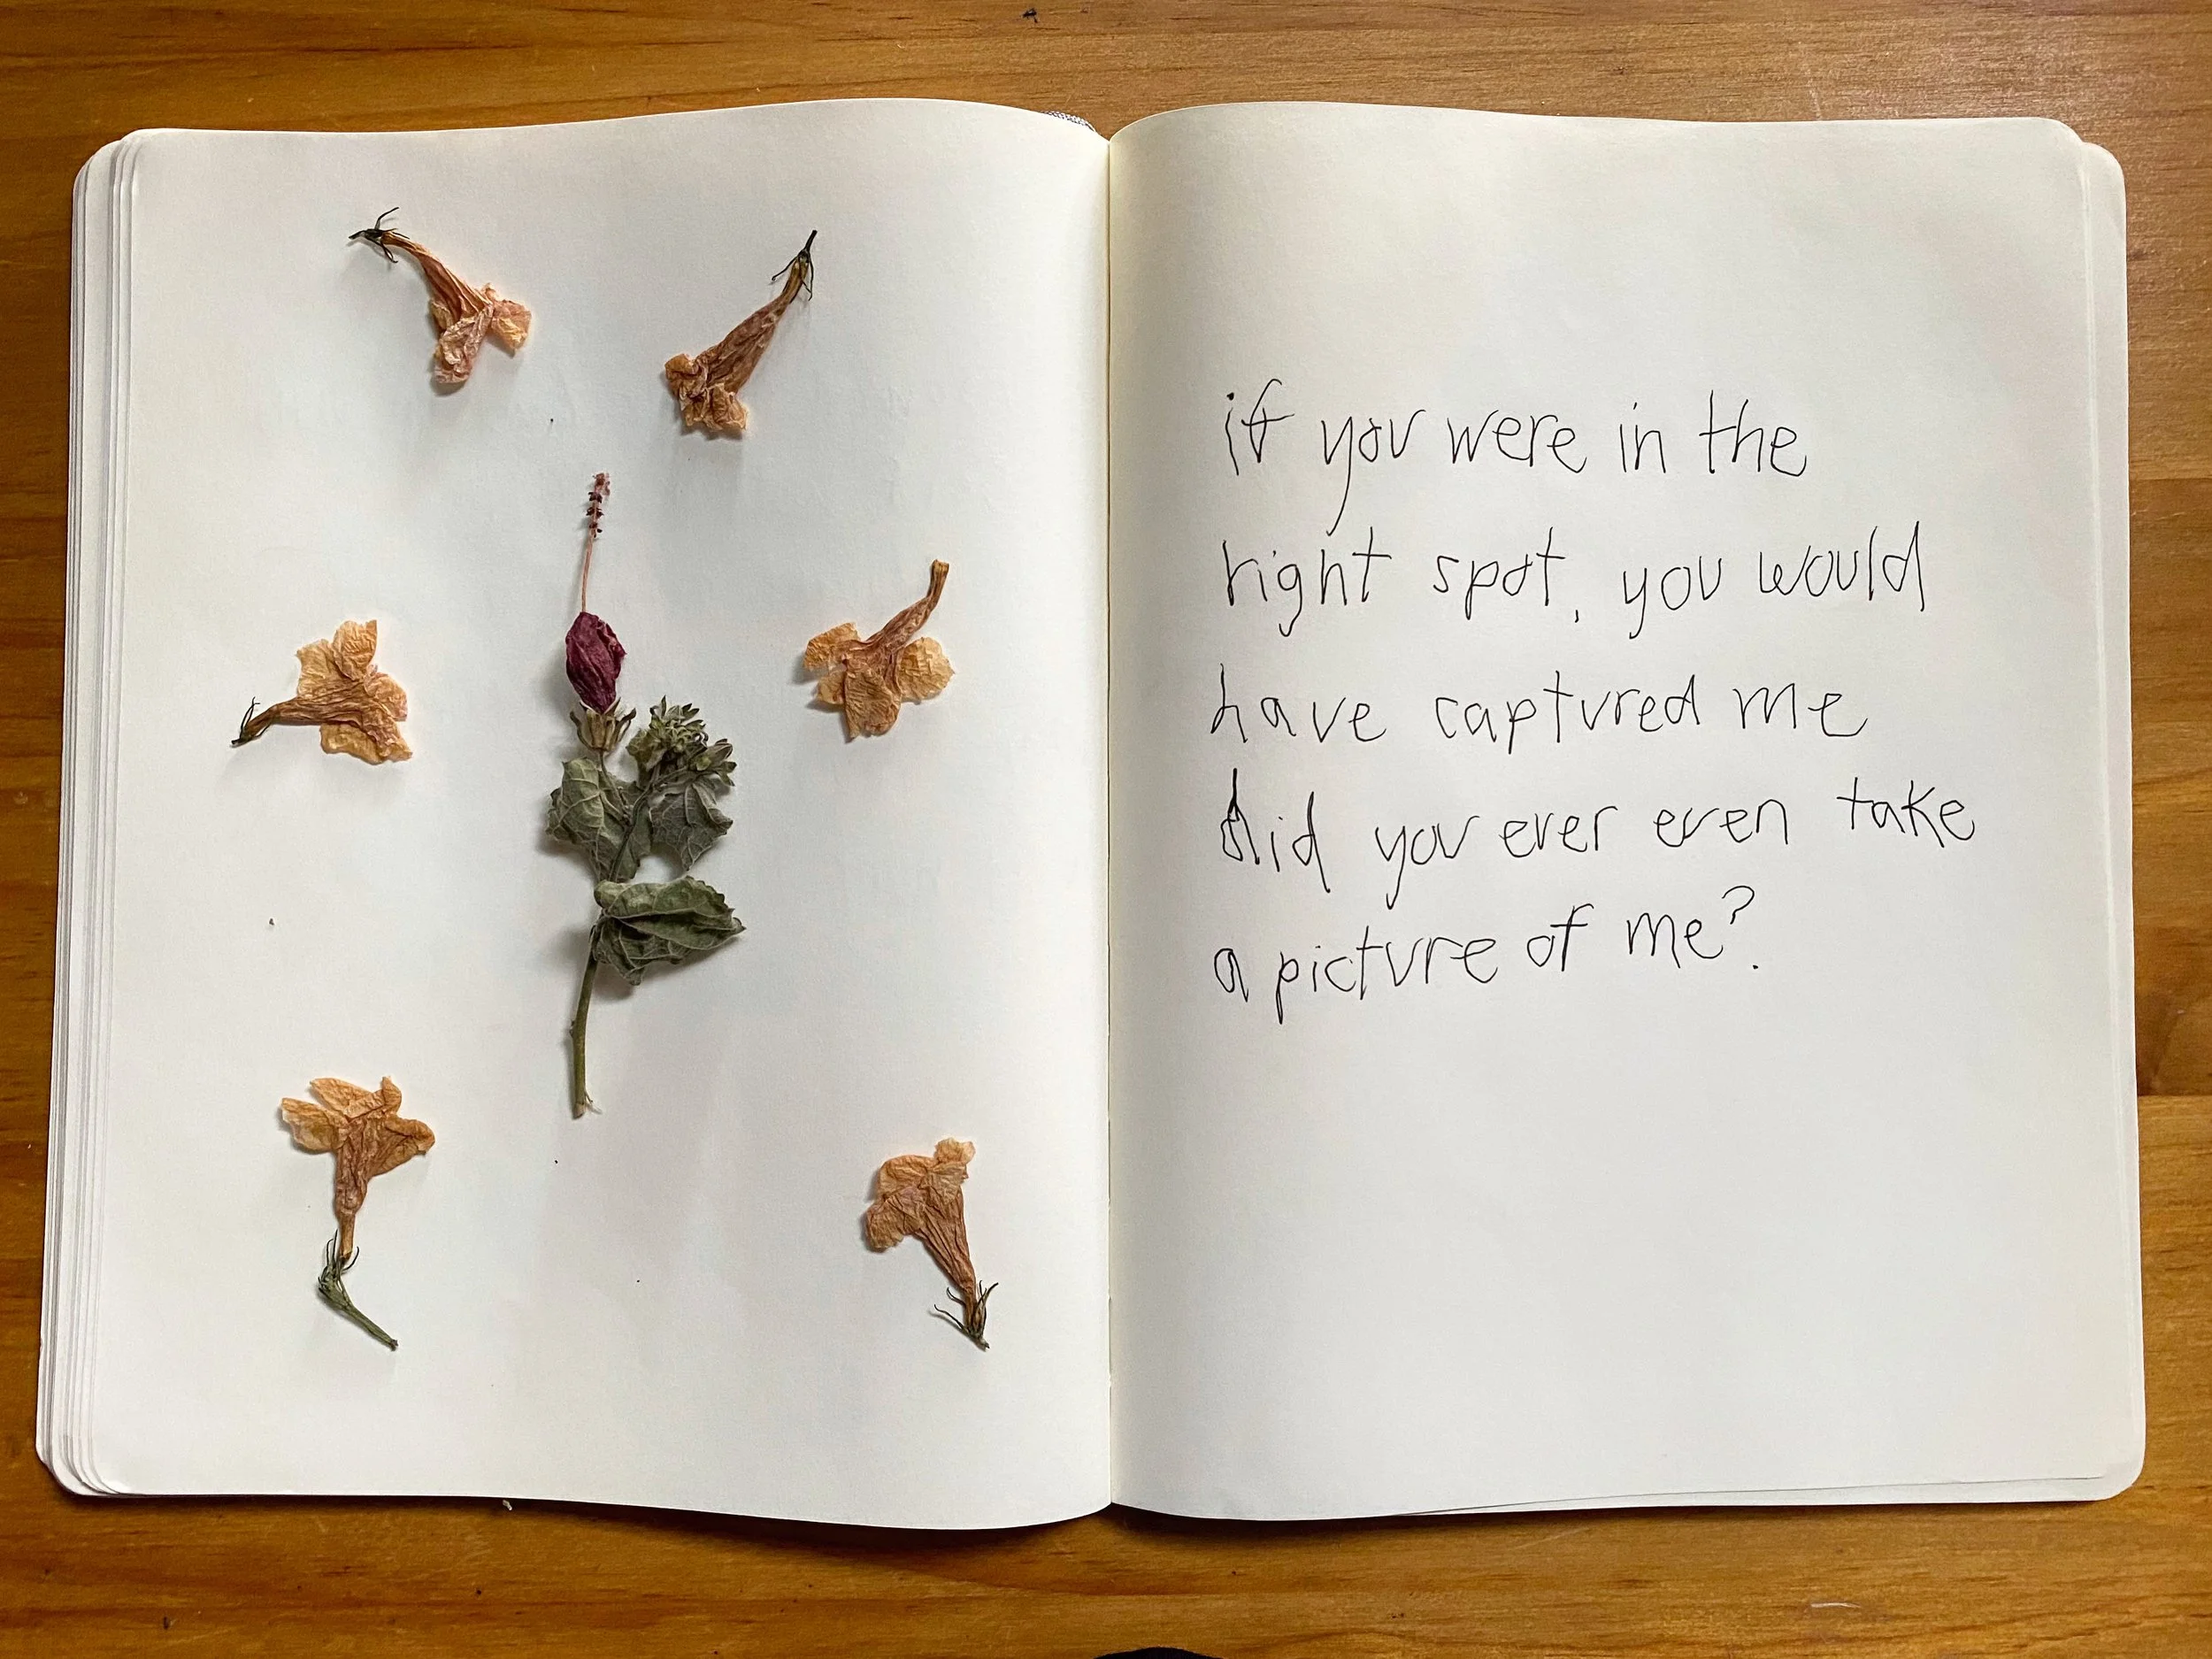 if you were in the
right spot, you would
have captured me
did you ever even take
a picture of me?